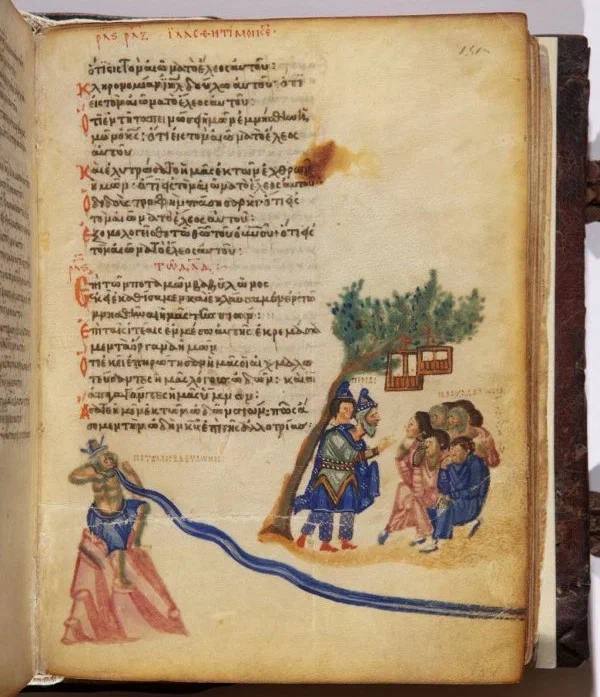 ὅτι εἰς τὸν αἰῶνα τὸ ἔλεος αὐτοῦ:
Κληρονομίαν ιηλ δούλω αὐτοῦ· ὅτι
εἰς τὸν αἰῶνα τὸ ἔλεος αὐτοῦ:
Ὅτι ἐν τῆ ταπεινώσει ἡμῶν ἐμνήσθη ἡ
μῶν ὁ κς: ὅτι εἰς τὸν αἰῶνα τὸ ἔλεος
αὐτοῦ
Καὶ ἐλυτρώσατο ἡμᾶς ἐκ τῶν ἐχθρῶν
ἡμῶν: ὅτι εἰς τὸν αἰῶνα τὸ ἔλεος αὐτοῦ
Ὁ διδοὺς τροφὴν πάση σαρκί: ὅτι εἰς
τὸν αἰῶνα τὸ ἔλεος αὐτοῦ:
Ἐξομολογεῖσθε τῶ θω τοῦ οὐνοῦ: ὅτι εἰς
τὸν αἰῶνα τὸ ἔλεος αὐτοῦ:
Τῶ δαδ
Ἐπὶ τῶν ποταμῶν βαβυλῶνος
ἐκεῖ ἐκαθίσαμεν καὶ ἐκλαύσαμεν ἐν τῶ
μνησθῆναι ἡμᾶς τῆς σιών:
Ἐπὶ ταῖς ἰτέαις ἐν μέσω αὐτῆς ἐκρεμάσα
μεν τὰ ὄργανα ἡμῶν
Ὅτι ἐκεῖ ἐπηρώτησαν ἡμᾶς οἱ αἰχμαλω
τεύσαντες ἡμᾶς λόγους ὠδῶν: καὶ οἱ
ἀπαγαγόντες ἡμᾶς ὕμνον:
Ἄσατε ἡμῖν ἐκ τῶν ὠδῶν σιών: πῶς ἄ
σωμεν τὴν ὠδὴν κυ ἐπὶ γῆς ἀλλοτρίας: